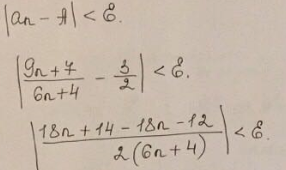 |an - A| < ℰ.
|(9n+7)/(6n+4) - 3/2| < ℰ.
|(18n + 14 - 18n - 12)/(2(6n+4))| < ℰ.